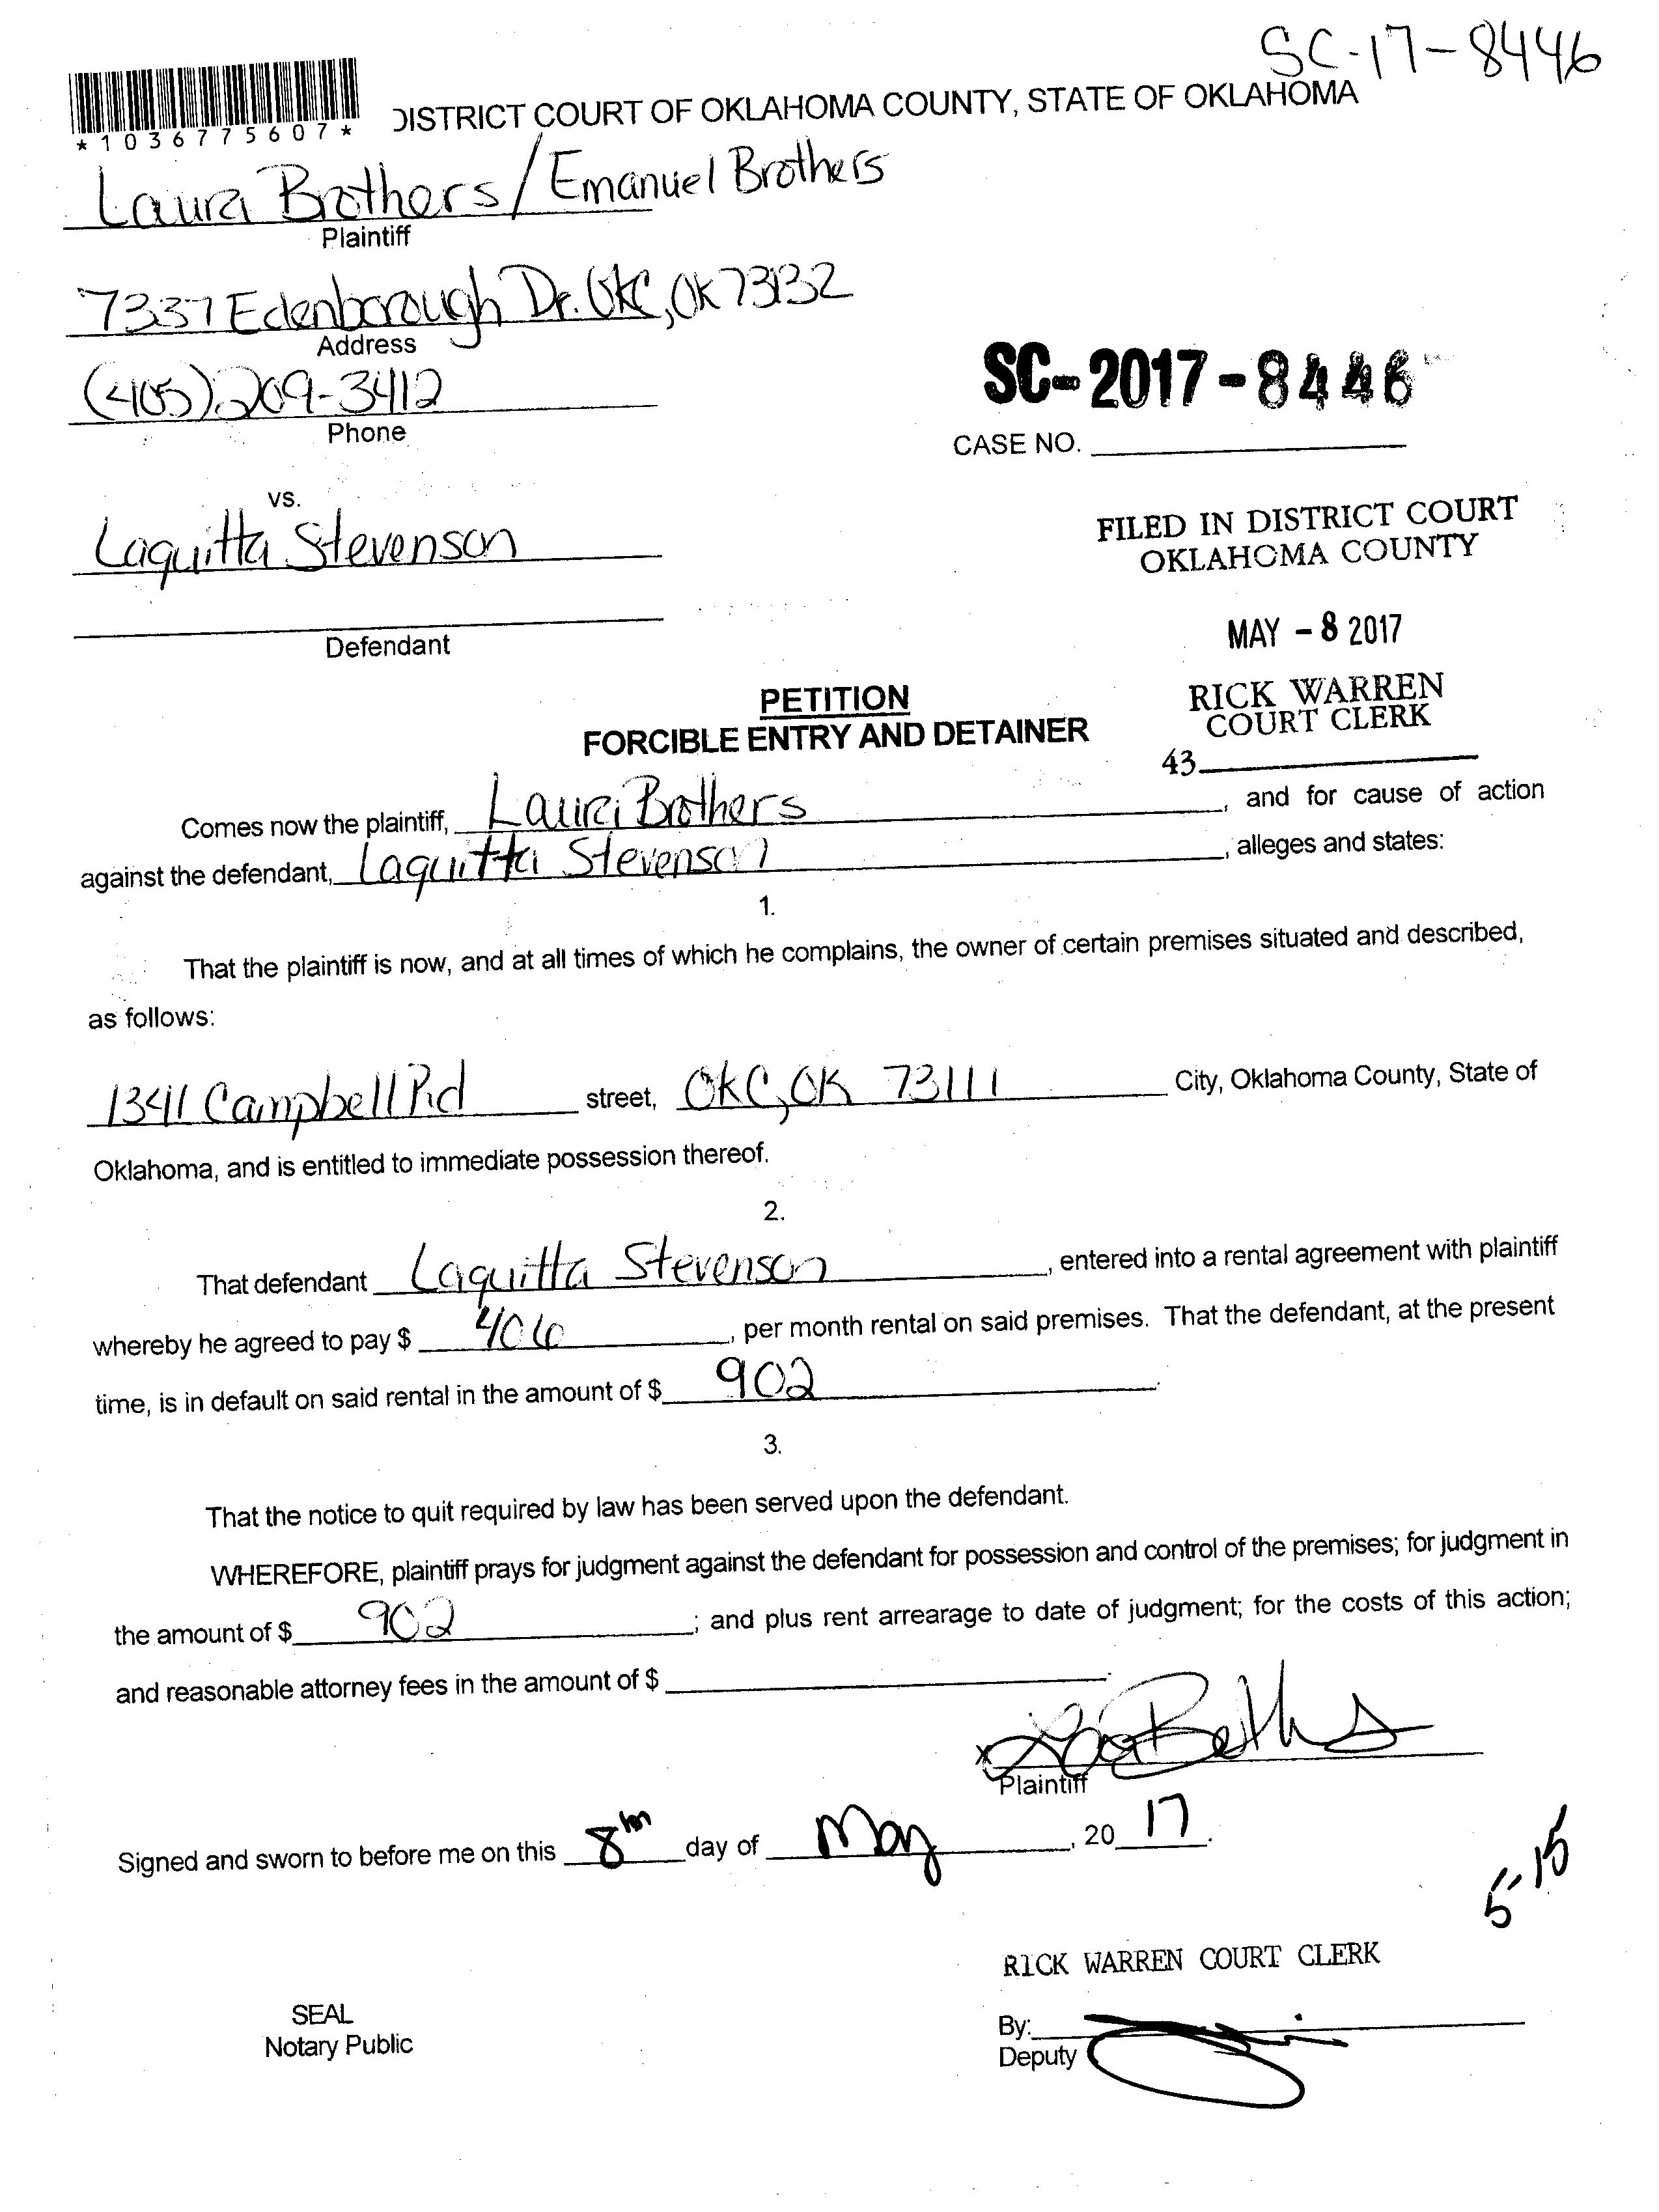 SC-17-8446
DISTRICT COURT OF OKLAHOMA COUNTY, STATE OF OKLAHOMA
*1036775607*
Laura Brothers / Emanuel Brothers
Plaintiff
7337 Edenborough Dr. OKC, OK 73132
Address
(405) 209-3412
Phone
SC-2017-8446
CASE NO.
vs.
Laquitta Stevenson
Defendant
FILED IN DISTRICT COURT
OKLAHOMA COUNTY
MAY -8 2017
RICK WARREN
COURT CLERK
43
PETITION
FORCIBLE ENTRY AND DETAINER
Comes now the plaintiff, Laura Brothers, and for cause of action
against the defendant, Laquitta Stevenson, alleges and states:
1.
That the plaintiff is now, and at all times of which he complains, the owner of certain premises situated and described,
as follows:
1341 Campbell Rd street, OKC, OK 73111 City, Oklahoma County, State of
Oklahoma, and is entitled to immediate possession thereof.
2.
That defendant Laquitta Stevenson, entered into a rental agreement with plaintiff
whereby he agreed to pay $ 406, per month rental on said premises. That the defendant, at the present
time, is in default on said rental in the amount of $ 902.
3.
That the notice to quit required by law has been served upon the defendant.
WHEREFORE, plaintiff prays for judgment against the defendant for possession and control of the premises; for judgment in
the amount of $ 902; and plus rent arrearage to date of judgment; for the costs of this action;
and reasonable attorney fees in the amount of $
x
Plaintiff
Signed and sworn to before me on this 8th day of May, 20 17.
5-15
RICK WARREN COURT CLERK
SEAL
Notary Public
By:
Deputy